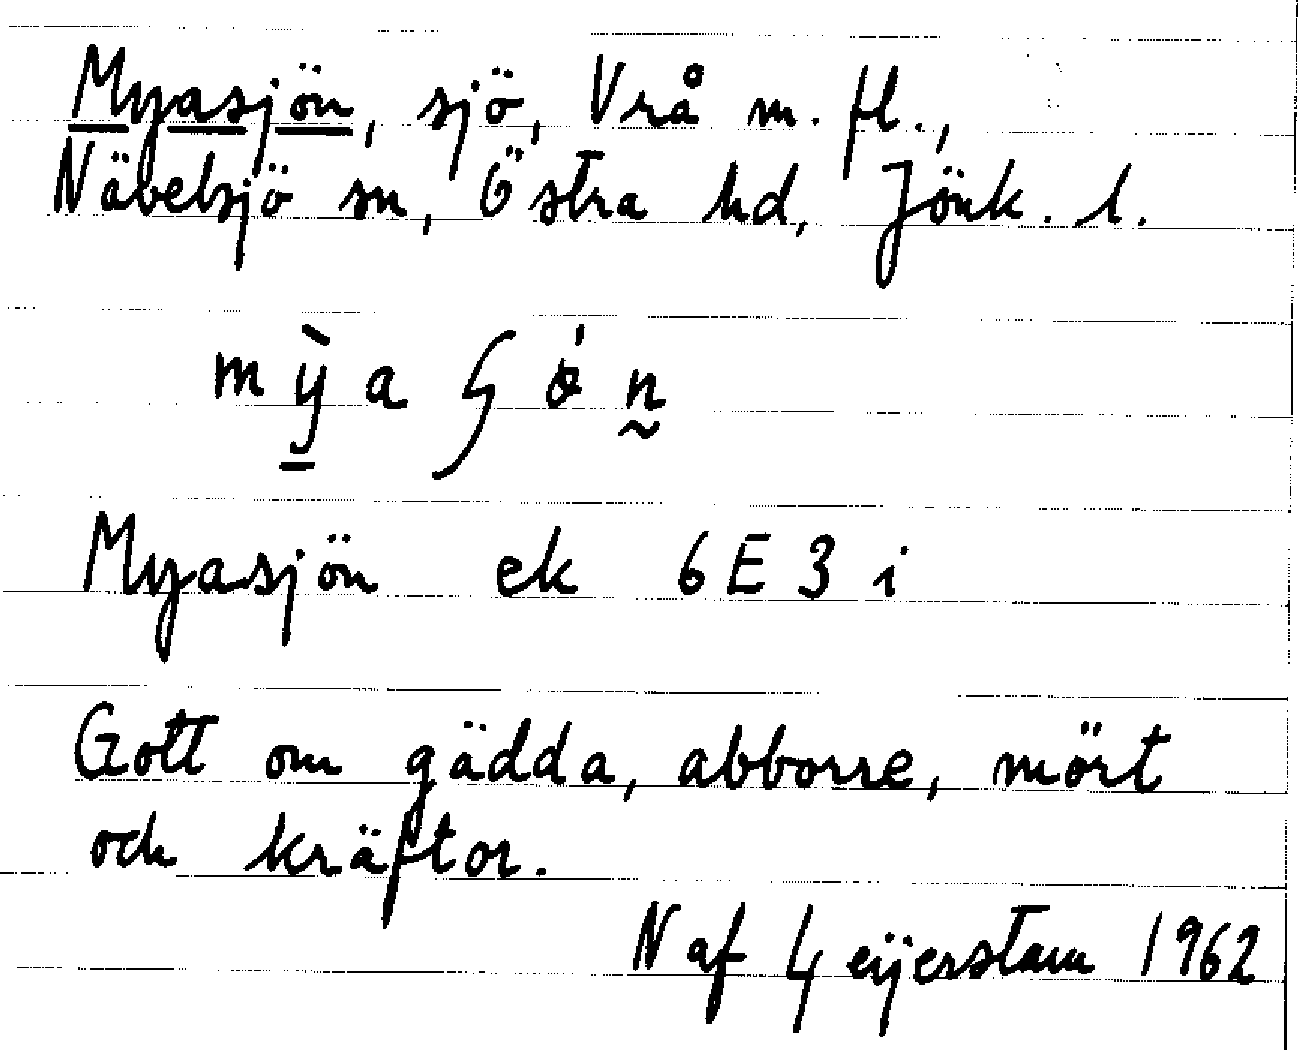 Myasjön, sjö, Vrå m. fl.,
Näbelsjö sn, Östra hd, Jönk. l.
Myasjön ek 6E3i
Gott om gädda, abborre, mört
och kräftor.
N af Geijerstam 1962